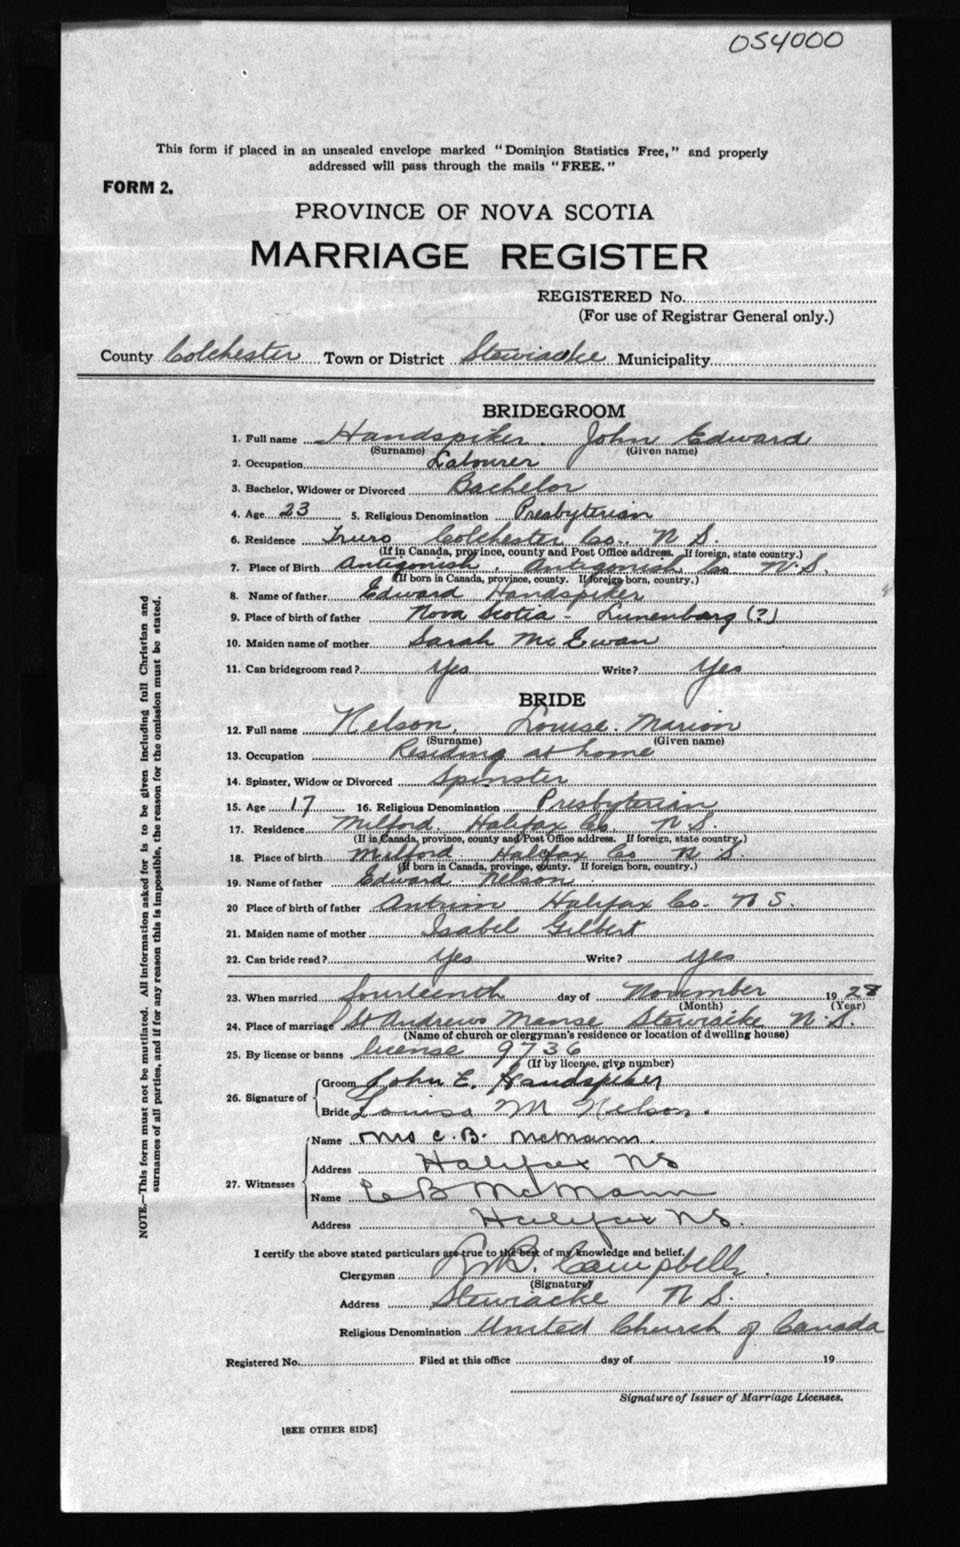 054000
This form if placed in an unsealed envelope marked "Dominion Statistics Free," and properly
addressed will pass through the mails "FREE."
FORM 2.
PROVINCE OF NOVA SCOTIA
MARRIAGE REGISTER
REGISTERED No.
(For use of Registrar General only.)
County Colchester Town or District Stewiacke Municipality
BRIDEGROOM
1. Full name Handspiker. John Edward
(Surname) (Given name)
2. Occupation Labourer
3. Bachelor, Widower or Divorced Bachelor
4. Age 23 5. Religious Denomination Presbyterian
6. Residence Truro Colchester Co. N S.
(If in Canada, province, county and Post Office address. If foreign, state country.)
7. Place of Birth Antigonish, Antigonish Co N.S.
(If born in Canada, province, county. If foreign born, country.)
8. Name of father Edward Handspiker
9. Place of birth of father Nova Scotia - Lunenburg (?)
10. Maiden name of mother Sarah McEwan
11. Can bridegroom read? Yes Write? Yes
BRIDE
12. Full name Nelson, Louise Marion
(Surname) (Given name)
13. Occupation Residing at home
14. Spinster, Widow or Divorced Spinster
15. Age 17 16. Religious Denomination Presbyterian
17. Residence Milford Halifax Co N S.
(If in Canada, province, county and Post Office address. If foreign, state country.)
18. Place of birth Milford Halifax Co N S.
(If born in Canada, province, county. If foreign born, country.)
19. Name of father Edward Nelson
20 Place of birth of father Antrim Halifax Co. N S.
21. Maiden name of mother Isabel Gilbert
22. Can bride read? Yes Write? Yes
23. When married fourteenth day of November 1928
(Month) (Year)
24. Place of marriage St Andrews Manse Stewiacke N.S.
(Name of church or clergyman's residence or location of dwelling house)
25. By license or banns license 9736
(If by license, give number)
26. Signature of
Groom John E. Handspiker
Bride Louisa M Nelson.
27. Witnesses
Name Mrs C. B. McMann.
Address Halifax NS
Name C B McMann
Address Halifax NS.
I certify the above stated particulars are true to the best of my knowledge and belief.
Clergyman B. Campbell.
(Signature)
Address Stewiacke N S.
Religious Denomination United Church of Canada
Registered No. Filed at this office day of 19
Signature of Issuer of Marriage Licenses.
[SEE OTHER SIDE]
NOTE.—This form must not be mutilated. All information asked for is to be given including full Christian and
surnames of all parties, and if for any reason this is impossible, the reason for the omission must be stated.